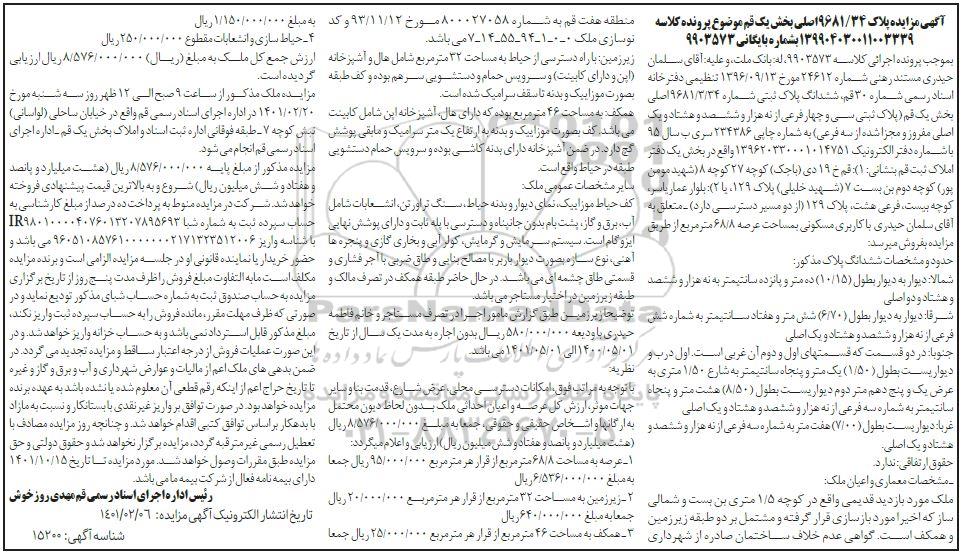 آگهی مزایده پلاک ۹۶۸۱/۳۴ اصلی بخش یک قم موضوع پرونده کلاسه
۱۳۹۹۰۴۰۳۰۰۱۱۰۰۳۳۳۹ بشماره بایگانی ۹۹۰۳۵۷۳
بموجب پرونده اجرائی کلاسه ۹۹۰۳۵۷۳، له: بانک ملت، و علیه: آقای سلمان
حیدری مستند رهنی شماره ۲۴۶۱۲ مورخ ۱۳۹۶/۰۹/۱۳ تنظیمی دفترخانه
اسناد رسمی شماره ۳۰ قم، ششدانگ پلاک ثبتی شماره ۹۶۸۱/۳/۳۴ اصلی
بخش یک قم (پلاک ثبتی سی و چهار فرعی از نه هزار و ششصد و هشتاد و یک
اصلی مفروز و مجزا شده از سه فرعی) به شماره چاپی ۲۳۴۳۸۶ سری ب سال ۹۵
با شماره دفتر الکترونیک ۱۳۹۶۲۰۳۳۰۰۰۱۰۱۴۷۵۱ واقع در بخش یک دفتر
املاک ثبت قم بنشانی: ۱): قم خ ۱۹ دی (باجک) کوچه ۲۷ کوچه ۸ (شهید مومن
پور) کوچه دوم بن بست ۷ (شهید خلیلی) پلاک ۱۲۹، یا ۲): بلوار عماریاسر،
کوچه بیست، فرعی هشت، پلاک ۱۲۹ (از دو مسیر دسترسی دارد) ـ متعلق به
آقای سلمان حیدری با کاربری مسکونی بمساحت عرصه ۶۸/۸ مترمربع از طریق
مزایده بفروش میرسد:
حدود و مشخصات ششدانگ پلاک مذکور:
شمالا: دیوار به دیوار بطول (۱۰/۱۵) ده متر و پانزده سانتیمتر به نه هزار و ششصد
و هشتاد و دو اصلی
شرقا: دیوار به دیوار بطول (۶/۷۰) شش متر و هفتاد سانتیمتر به شماره شش
فرعی از نه هزار و ششصد و هشتاد و یک اصلی
جنوبا: در دو قسمت که قسمتهای اول و دوم آن غربی است. اول درب و
دیواریست بطول (۱/۵۰) یک متر و پنجاه سانتیمتر به شارع ۱/۵۰ متری به
عرض یک و پنج دهم متر دوم دیواریست بطول (۸/۵۰) هشت متر و پنجاه
سانتیمتر به شماره سه فرعی از نه هزار و ششصد و هشتاد و یک اصلی
غربا: دیواریست بطول (۷/۰۰) هفت متر به شماره سه فرعی از نه هزار و ششصد و
هشتاد و یک اصلی.
حقوق ارتفاقی: ندارد.
ـ مشخصات معماری و اعیان ملک:
ملک مورد بازدید قدیمی واقع در کوچه ۱/۵ متری بن بست و شمالی
ساز که اخیرا مورد بازسازی قرار گرفته و مشتمل بر دو طبقه زیرزمین
و همکف است. گواهی عدم خلاف ساختمان صادره از شهرداری
منطقه هفت قم به شماره ۸۰۰۰۲۷۰۵۸ مورخ ۹۳/۱۱/۱۲ و کد
نوسازی ملک ۰-۰-۱-۹۴-۵۵-۱۴-۷ می باشد.
زیرزمین: با راه دسترسی از حیاط به مساحت ۳۲ مترمربع شامل هال و آشپزخانه
(اپن و دارای کابینت) و سرویس حمام و دستشویی سرهم بوده و کف طبقه
بصورت موزاییک و بدنه تا سقف سرامیک شده است.
همکف: به مساحت ۴۶ مترمربع بوده که دارای هال، آشپزخانه اپن شامل کابینت
می باشد. کف بصورت موزاییک و بدنه به ارتفاع یک متر سرامیک و مابقی پوشش
گچ دارد. در ضمن آشپزخانه دارای بدنه کاشی بوده و سرویس حمام دستشویی
طبقه در حیاط واقع است.
سایر مشخصات عمومی ملک:
کف حیاط موزاییک، نمای دیوار و بدنه حیاط، سنگ تراورتن، انشعابات شامل
آب، برق و گاز، پشت بام بدون جانپناه و دسترسی با پله ثابت و دارای پوشش نهایی
ایزوگام است. سیستم سرمایش و گرمایش، کولر آبی و بخاری گازی و پنجره ها
آهنی، نوع سازه بصورت دیوار باربر با مصالح بنایی و طاق ضربی با آجر فشاری و
قسمتی طاق چشمه ای می باشد. در حال حاضر طبقه همکف در تصرف مالک و
طبقه زیرزمین در اختیار مستاجر می باشد.
توضیحا: زیرزمین طبق گزارش مامور اجرا در تصرف مستاجر و خانم فاطمه
حیدری با ودیعه ۵۸۰/۰۰۰/۰۰۰ ریال بدون اجاره به مدت یک سال از تاریخ
۱۴۰۰/۰۵/۰۱ الی ۱۴۰۱/۰۵/۰۱ می باشد.
نظریه:
با توجه به مراتب فوق، امکانات دسترسی محلی، عرض شارع، قدمت بنا و سایر
جهات موثر، ارزش کل عرصه و اعیان احداثی ملک بدون لحاظ دیون محتمل
به ارگانها و اشخاص حقیقی و حقوقی جمعا به مبلغ ۸/۵۷۶/۰۰۰/۰۰۰ ریال
(هشت میلیارد و پانصد و هفتاد و شش میلیون ریال) ارزیابی و اعلام میگردد:
۱ـ عرصه به مساحت ۶۸/۸ مترمربع از قرار هر مترمربع ۹۵/۰۰۰/۰۰۰ ریال جمعا
به مبلغ ۶/۵۳۶/۰۰۰/۰۰۰ ریال
۲ـ زیرزمین به مساحت ۳۲ مترمربع از قرار هر مترمربع ۲۰/۰۰۰/۰۰۰ ریال
جمعا به مبلغ ۶۴۰/۰۰۰/۰۰۰ ریال
۳ـ همکف به مساحت ۴۶ مترمربع از قرار هر مترمربع ۲۵/۰۰۰/۰۰۰ ریال جمعا
به مبلغ ۱/۱۵۰/۰۰۰/۰۰۰ ریال
۴ـ حیاط سازی و انشعابات مقطوع ۲۵۰/۰۰۰/۰۰۰ ریال
ارزش جمع کل ملک به مبلغ (ریال) ۸/۵۷۶/۰۰۰/۰۰۰ ریال ارزیابی
گردیده است.
مزایده ملک مذکور از ساعت ۹ صبح الی ۱۲ ظهر روز سه شنبه مورخ
۱۴۰۱/۰۲/۲۰ در اداره اجرای اسناد رسمی قم واقع در خیابان ساحلی (لواسانی)
نبش کوچه ۷ ـ طبقه فوقانی اداره ثبت اسناد و املاک بخش یک قم ـ اداره اجرای
اسناد رسمی قم انجام می شود.
مزایده مذکور از مبلغ پایه ۸/۵۷۶/۰۰۰/۰۰۰ ریال (هشت میلیارد و پانصد
و هفتاد و شش میلیون ریال) شروع و به بالاترین قیمت پیشنهادی فروخته
خواهد شد. شرکت در مزایده منوط به پرداخت ده درصد از مبلغ کارشناسی به
حساب سپرده ثبت به شماره شبا IR۹۸۰۱۰۰۰۰۴۰۷۶۰۱۳۲۰۷۸۹۵۶۹۳
با شناسه واریز ۹۶۰۵۱۰۸۵۷۶۱۰۰۰۰۰۰۲۱۷۱۳۲۳۵۱۲۰۰۶ می باشد و
حضور خریدار یا نماینده قانونی او در جلسه مزایده الزامی است و برنده مزایده
مکلف است مابه التفاوت مبلغ فروش را ظرف مدت پنج روز از تاریخ برگزاری
مزایده به حساب صندوق ثبت به شماره حساب شبای مذکور تودیع نماید و در
صورتی که ظرف مهلت مقرر، مانده فروش را به حساب سپرده ثبت واریز نکند،
مبلغ مذکور قابل استرداد نمی باشد و به حساب خزانه واریز خواهد شد. و در
این صورت عملیات فروش از درجه اعتبار ساقط و مزایده تجدید می گردد. در
ضمن بدهی های ملک اعم از مالیات و عوارض شهرداری و آب و برق و گاز و غیره
تا تاریخ حراج اعم از اینکه رقم قطعی آن معلوم شده یا نشده باشد به عهده برنده
مزایده خواهد بود. در صورت توافق بر واریز غیرنقدی با بستانکار و نسبت به مازاد
با بدهکار بر اساس توافق کتبی اقدام خواهد شد. و چنانچه روز مزایده مصادف با
تعطیل رسمی غیرمترقبه گردد، مزایده برگزار نخواهد شد و حقوق دولتی و حق
مزایده طبق مقررات وصول خواهد شد. مورد مزایده تا تاریخ ۱۴۰۱/۱۰/۱۵
دارای بیمه نامه فعال از شرکت بیمه ما می باشد.
رئیس اداره اجرای اسناد رسمی قم مهدی روزخوش
تاریخ انتشار الکترونیک آگهی مزایده: ۱۴۰۱/۰۲/۰۶
شناسه آگهی: ۱۵۲۰۰